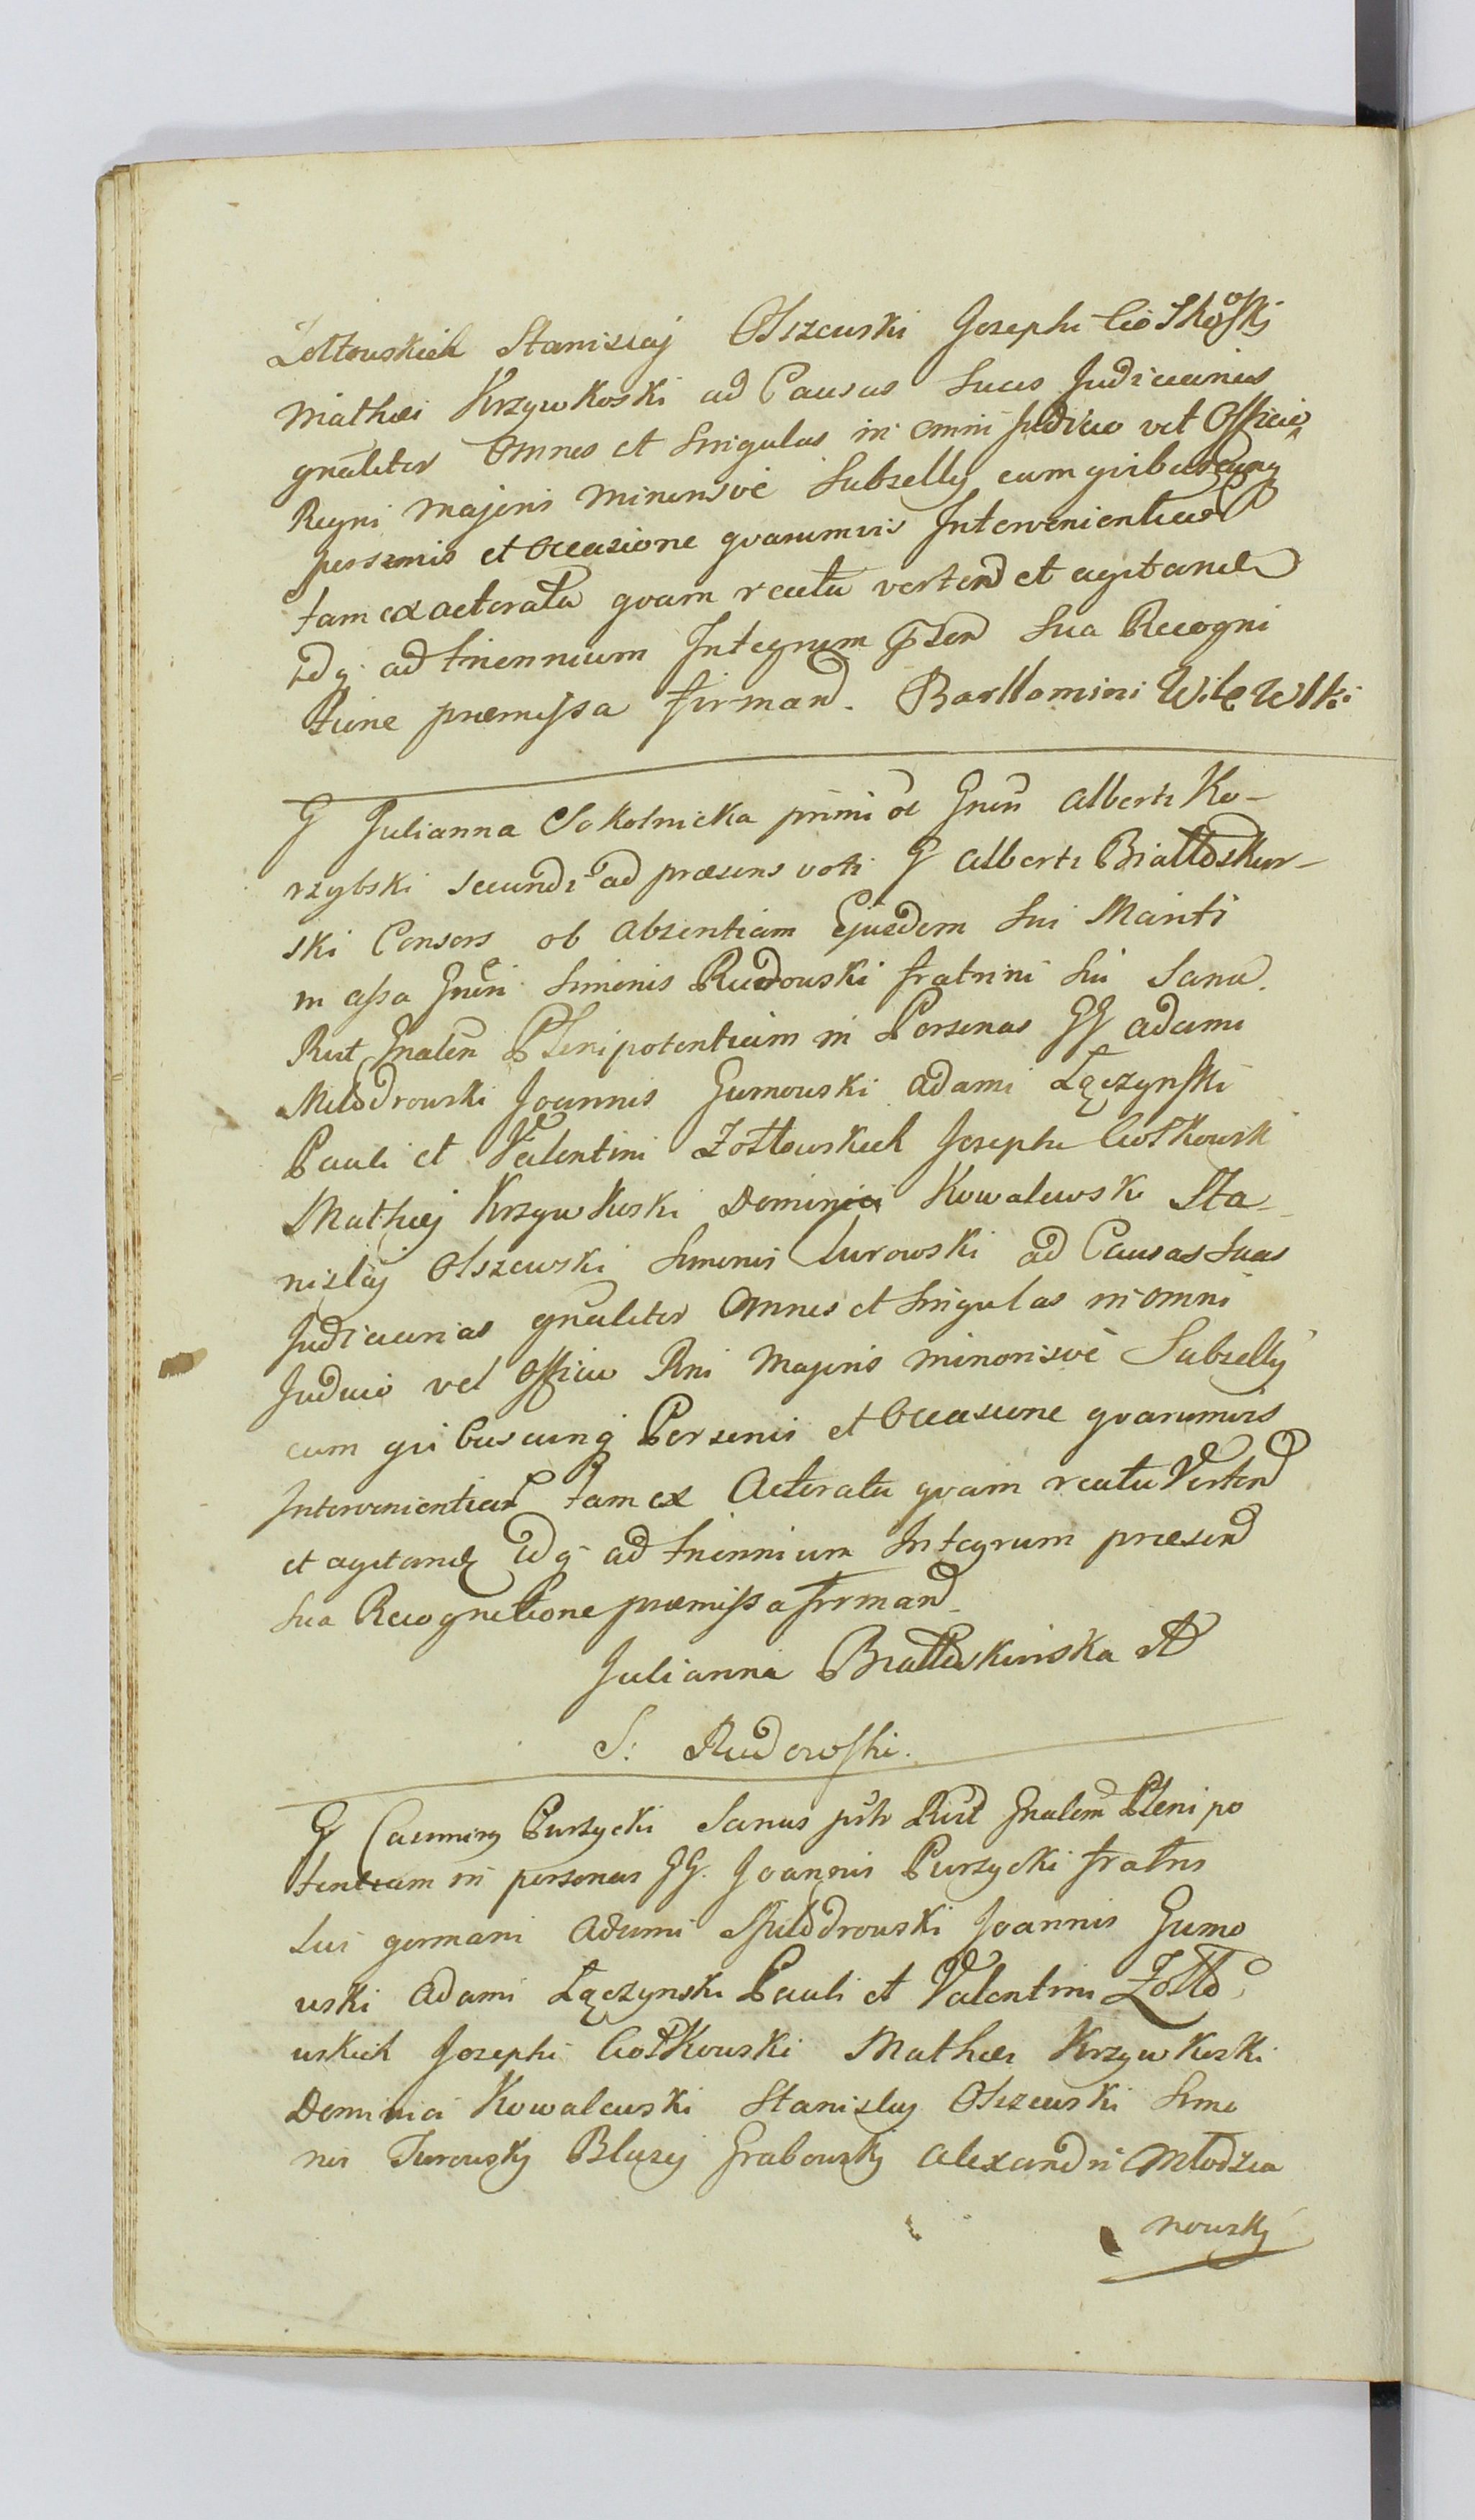 Zołtowskich Stanislaj Olszewski Josephi Ciołkoski
Mathæi Krzywkoski ad Causas suas Judiciarias
gnāliter omnes et singulas in omni judicio vel Officio
Regni majoris minorisvè Subsellij cum qvibuscunq
personis et occasione qvarumvis Intervenientiar
tam ex actoratu qvam reatu vertend et agitand
idq ad triennium Integrum præsen sua Recogni
tione præmissa firmand. Barttomini
G Julianna Sokolnicka primi ol Gnen Alberti Ko-
rzybski secundi ad præsens voti G Alberti Białłoskur-
ski Consors ob absentiam Ejusdem sui Mariti
in assa Gnēri Simonis Rudowski fratrini sui sana.
Rist Gnalen Plenipotentiam in Personas GG adami
Młodrowski Joannis Gumowski Adami Łączynski
Pauli et Valentini Zołtowskich Josephi Ciołkowsk
Mathæj Krzywkoski Dominici Kowalewsk Sta-
nislaj Olszewski Simonis Turowski ad Causas suas
Judiciarias gnāliter omnes et singulas in omni
Judicio vel officio Rni Majoris minorisvè Subsellij
cum qvibuscunq Personis et occasione qvarumvis
Intervenientiar tam ex Actoratu qvam reatu Vertend
et agitand idq ad triennium Integrum præsend
sua Recognitione præmissa firmand
Julianna Białłoskurska
S: Rudowski.
G Casimirg Purzycki Sanus Rist Gnalem Plenipo
tentiam in personas GG. Joannis Purzycki fratris
sui germani Adami Młodrowski Joannis Gumo
wski Adami Łączynski Pauli et Valentini Zołto
wskich Josephi Ciołkowski Mathæi Krzywkoski
Dominici Kowalewski Stanislaj Olszewski Simo
nis Turowskj Blasij Grabowskj Alexandri Młodzia
nowskj